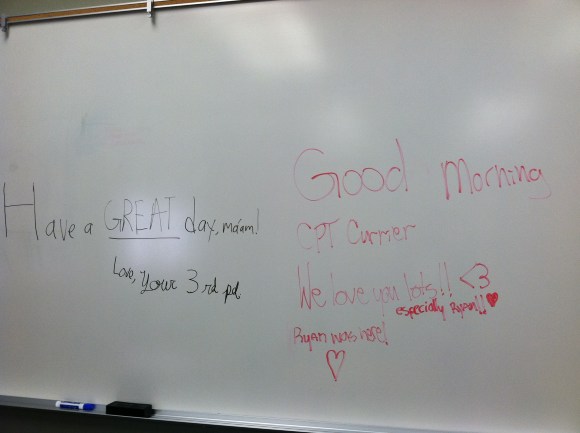 Have a GREAT day, ma'am!
Love, Your 3rd pd
Good Morning
CPT Currier
We love you lots!! <3
especially Ryan!! ♥
Ryan was here!
♡